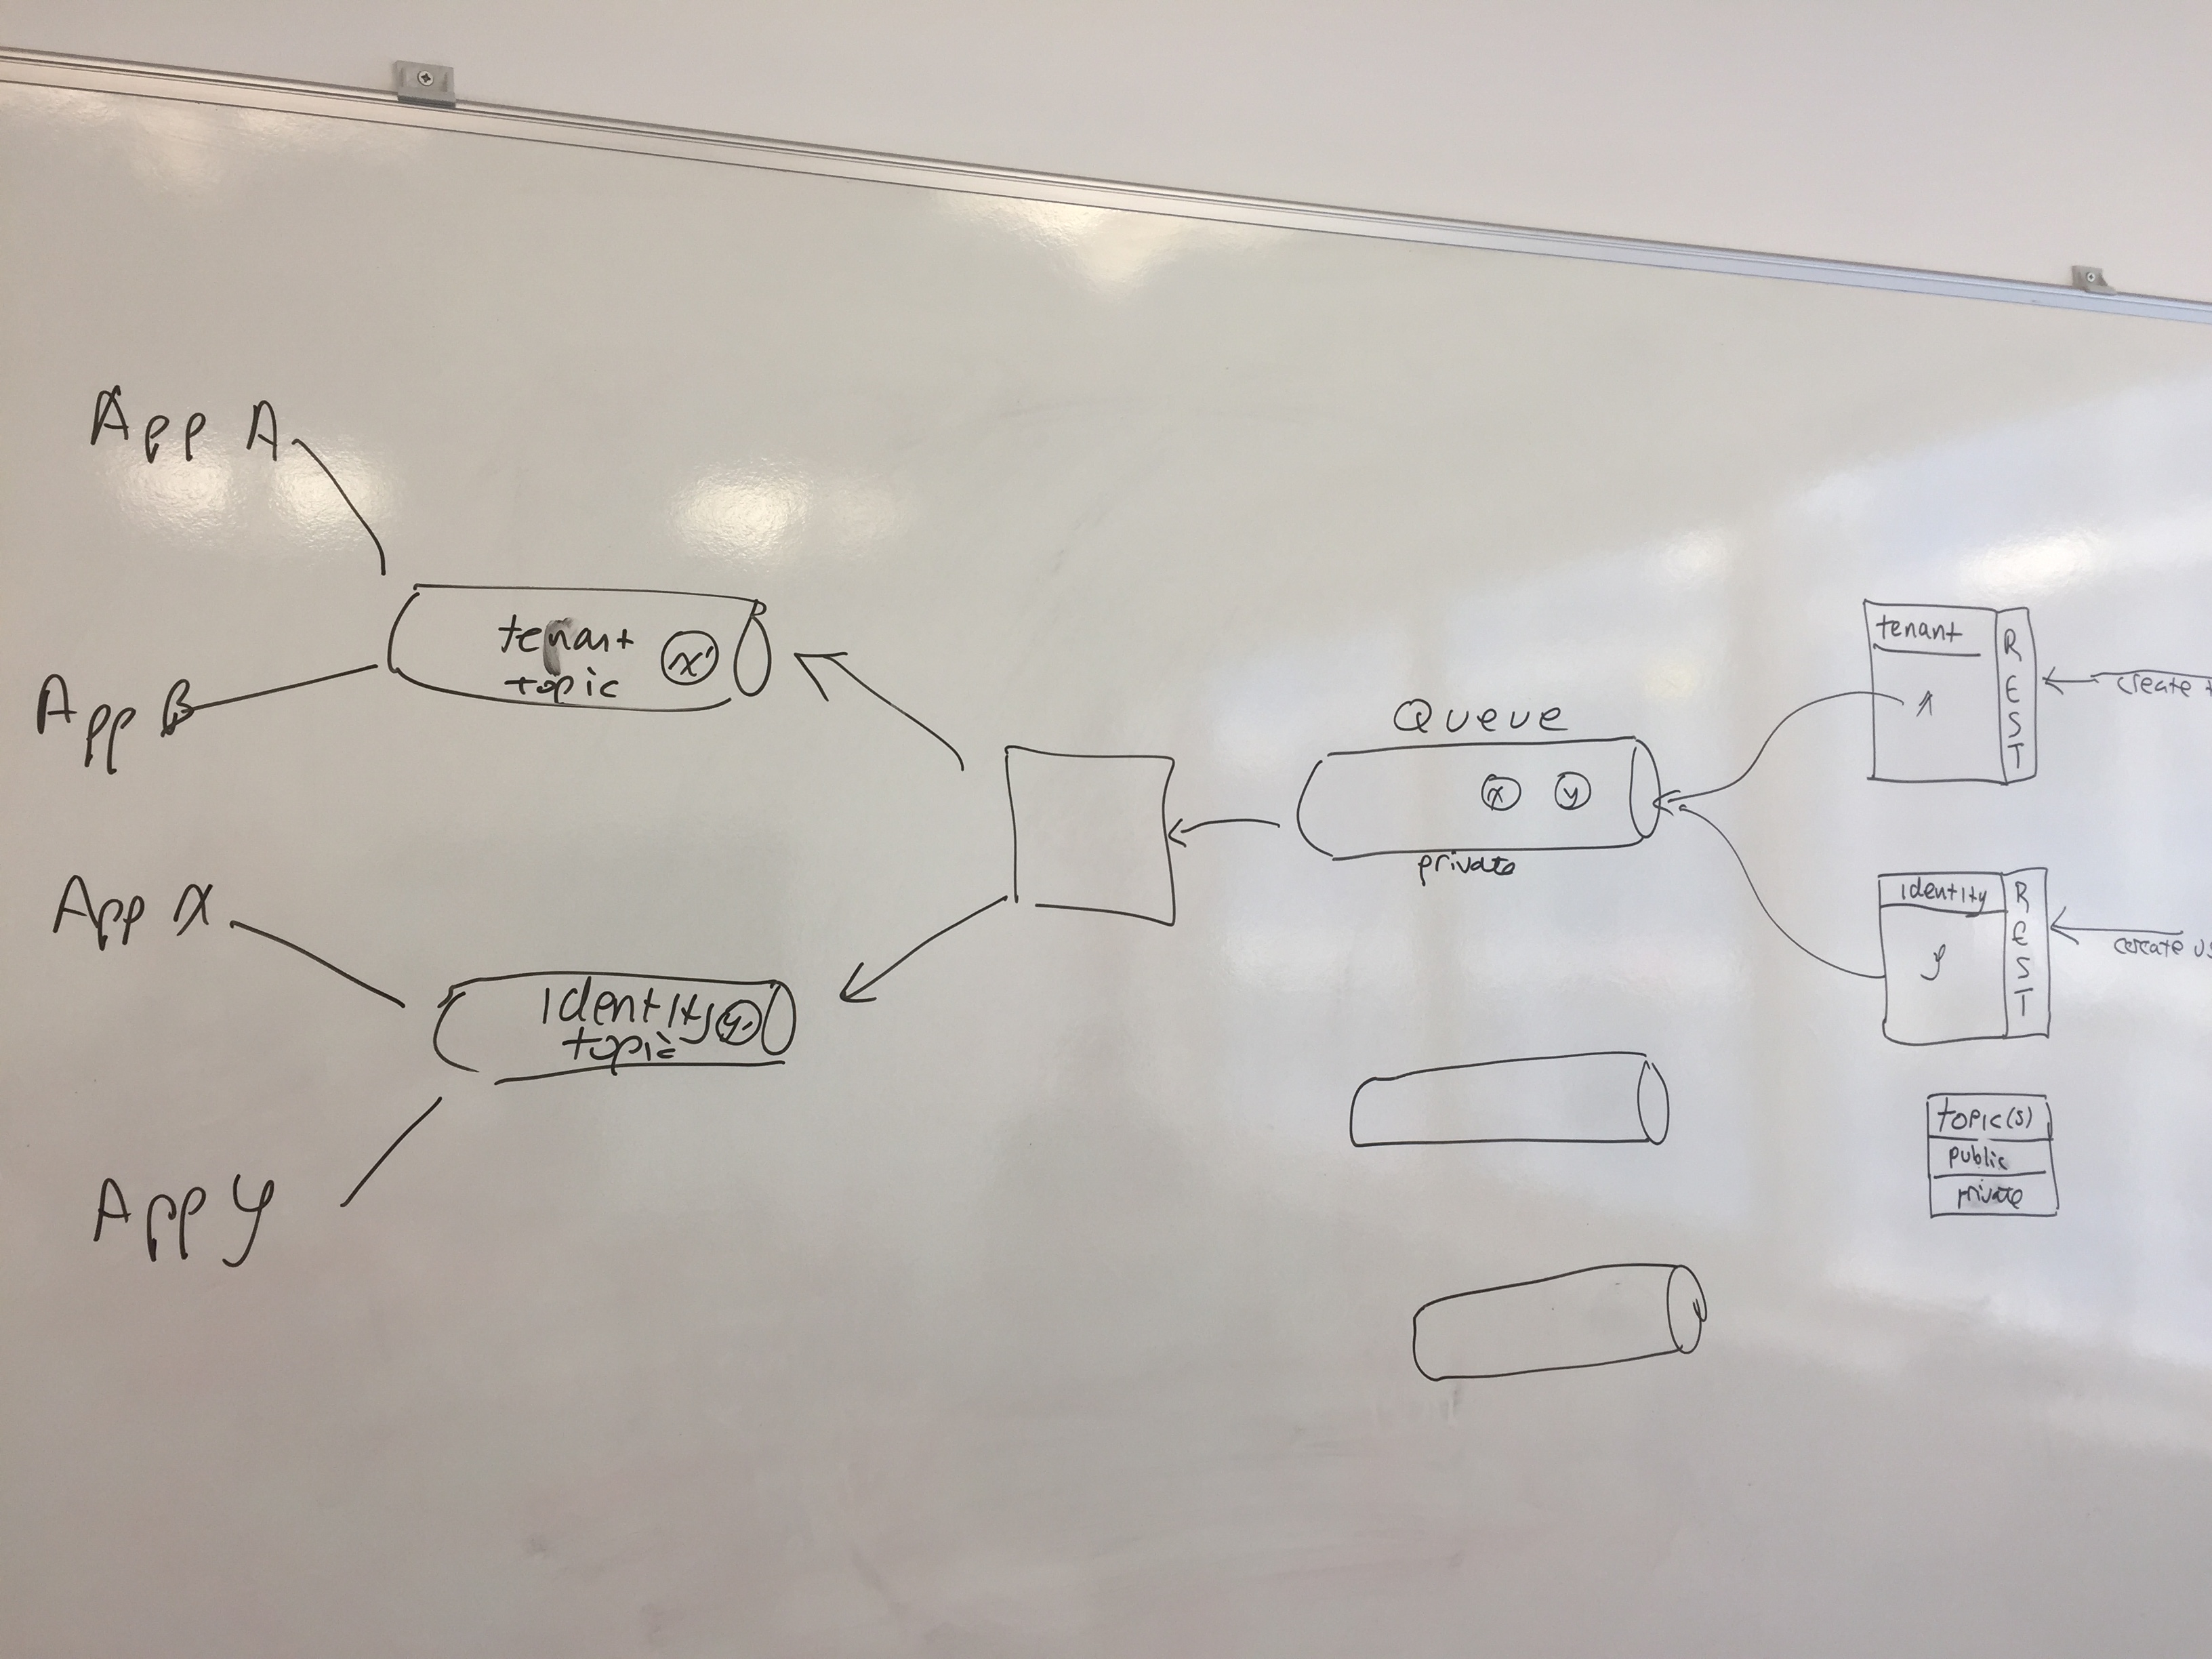 App A
tenant x'
topic
App B
App X
identity y'
topic
App Y
Queue
x y
private
tenant
REST
create
identity
y
REST
create
topic(s)
public
private